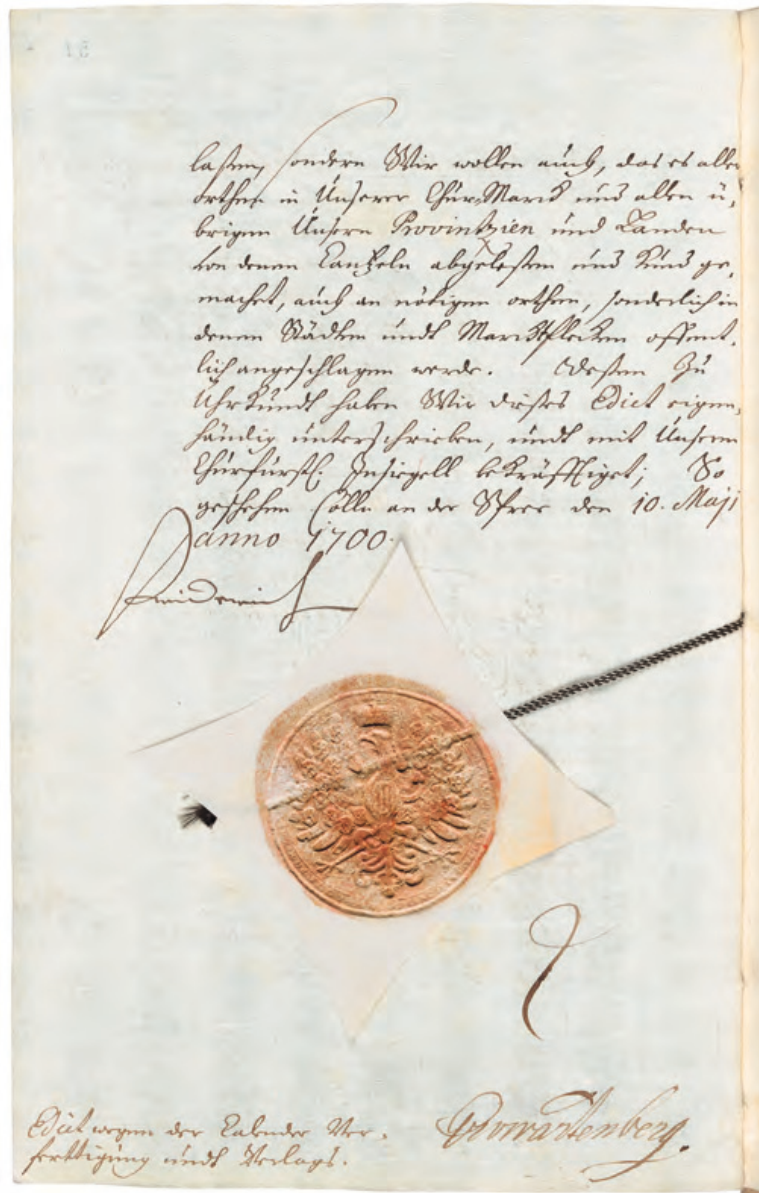 laßen, sondern Wir wollen auch, das es aller
orthen in Unserer Chur-Marck und allen ü,
brigen Unsern Provintzien und Landen
von denen Cantzeln abgeleßen und Kund ge,
machet, auch an nötigen orthen, sonderlich in
denen Städten undt Marcktflecken offent,
lich angeschlagen werde. Deßen Zu
Uhrkundt haben Wir dießes Edict eigen,
händig unterschrieben, undt mit Unserm
Churfürstl. Insiegell bekräfftiget; So
geschehen Cölln an der Spree den 10. Maji
anno 1700.
Friderich
Edict wegen der Calender Ver,
ferttigung undt Verlags.
Gvwartenberg.